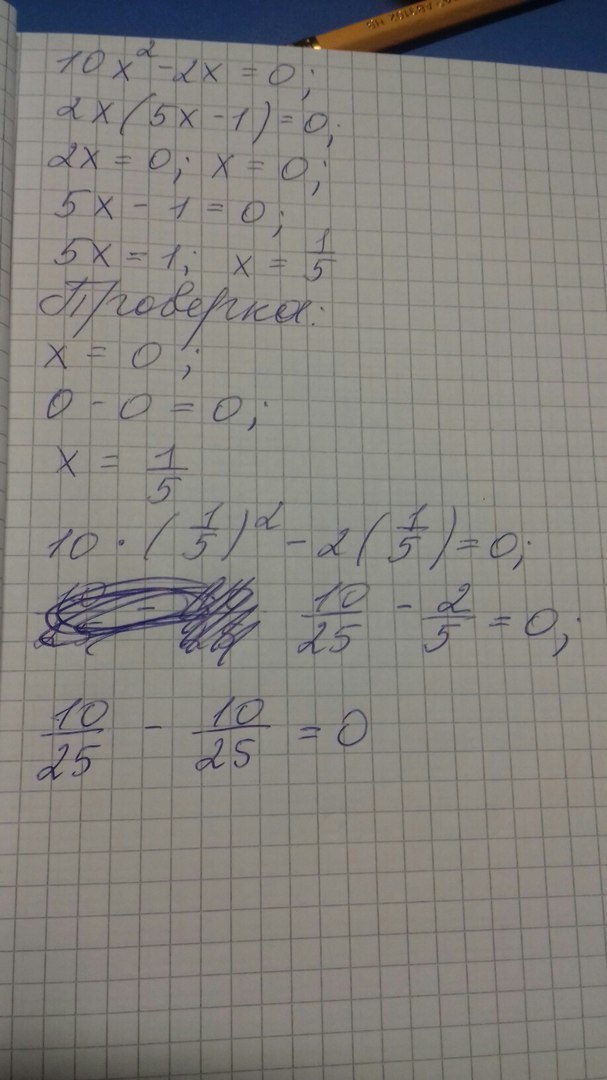 10x² - 2x = 0;
2x(5x - 1) = 0;
2x = 0; x = 0;
5x - 1 = 0;
5x = 1; x = 1/5
Проверка:
x = 0;
0 - 0 = 0;
x = 1/5
10 · (1/5)² - 2(1/5) = 0;
10/25 - 2/5 = 0;
10/25 - 10/25 = 0